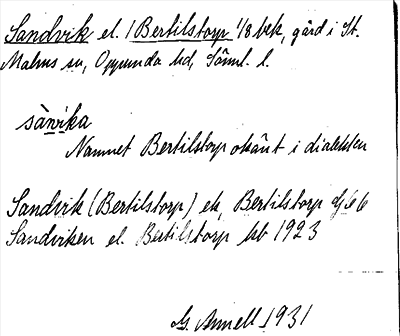 Sandvik el. / Bertilstorp 1/8 bek, gård i St.
Malms sn, Oppunda hd, Söml. l.
sàwika
Namnet Bertilstorp okänt i dialekten
Sandvik (Bertilstorp) ek, Bertilstorp dj 66
Sandviken el. Bertilstorp kb 1923
G. Annell 1931